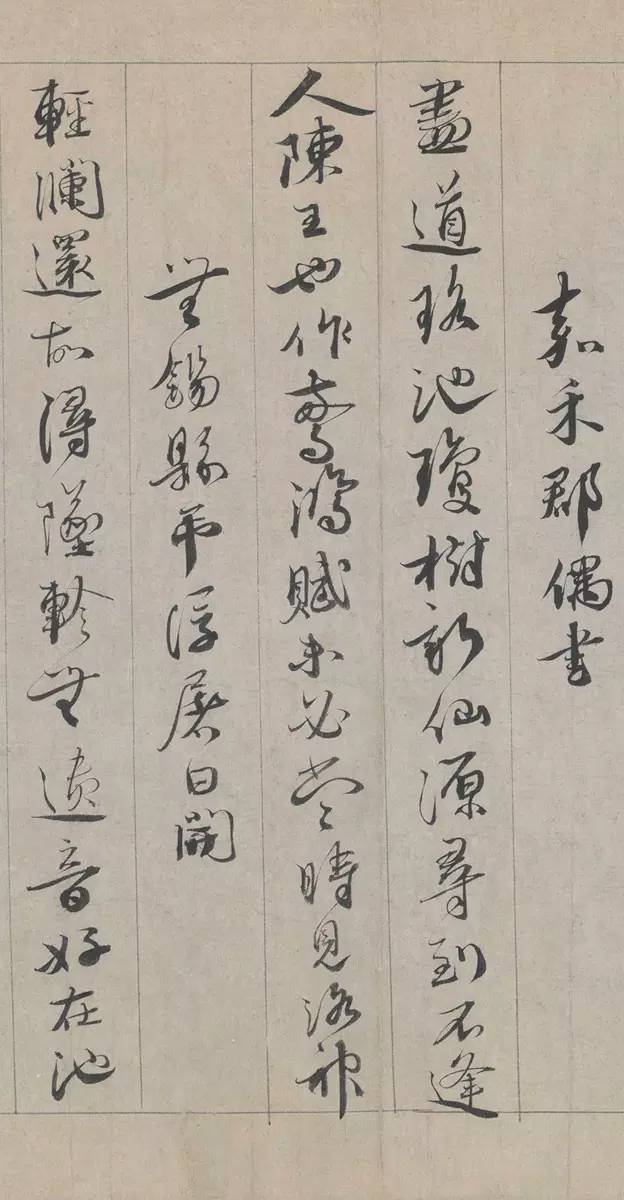 嘉禾郡偶書
盡道瑤池瓊樹新仙源尋到不逢
人陳王也作驚鴻賦未必當時見洛神
無錫縣弔浮屠日開
輕瀾還故潯墜軫無遺音好在池